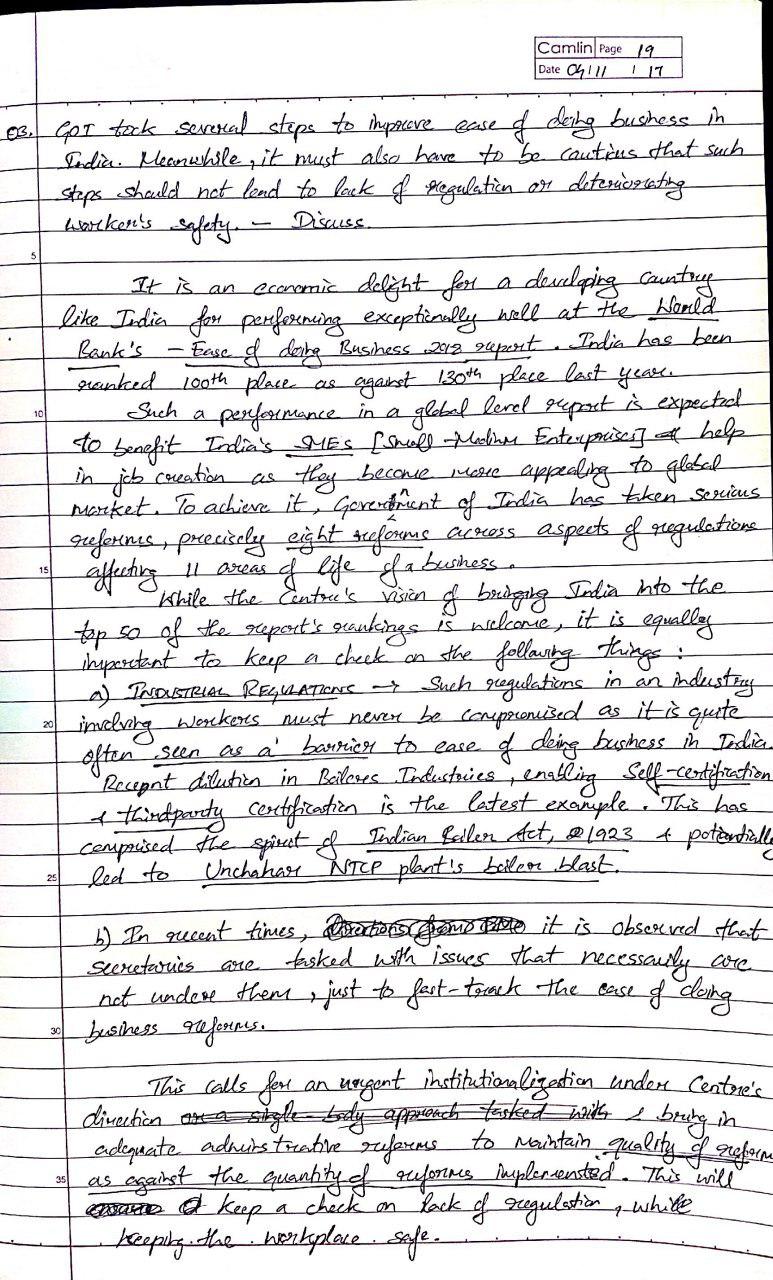 Camlin Page 19
Date 04/11/17
Q3. GOI took several steps to improve ease of doing business in
India. Meanwhile, it must also have to be cautious that such
steps should not lead to lack of regulation or deteriorating
worker's safety. - Discuss.
5
It is an economic delight for a developing country
like India for performing exceptionally well at the World
Bank's - Ease of doing Business 2018 report. India has been
ranked 100th place as against 130th place last year.
10
Such a performance in a global level report is expected
to benefit India's SMEs [Small-Medium Enterprises] & help
in job creation as they become more appealing to global
market. To achieve it, Government of India has taken serious
reforms, precisely eight reforms across aspects of regulations
15
affecting 11 areas of life of a business.
While the Centre's vision of bringing India into the
top 50 of the report's rankings is welcome, it is equally
important to keep a check on the following things :
a) INDUSTRIAL REGULATIONS → Such regulations in an industry
20
involving workers must never be compromised as it is quite
often seen as a barrier to ease of doing business in India.
Recent dilution in Boilers Industries, enabling Self-certification
& thirdparty certification is the latest example. This has
comprised the spirit of Indian Boiler Act, 1923 & potentially
25
led to Unchahar NTCP plant's boiler blast.
b) In recent times, it is observed that
secretaries are tasked with issues that necessarily are
not under them, just to fast-track the ease of doing
30
business reforms.
This calls for an urgent institutionalization under Centre's
direction or a single body approach tasked with & bring in
adequate adminstrative reforms to maintain quality of reforms
35
as against the quantity of reforms implemented. This will
keep a check on lack of regulation, while
keeping the workplace safe.